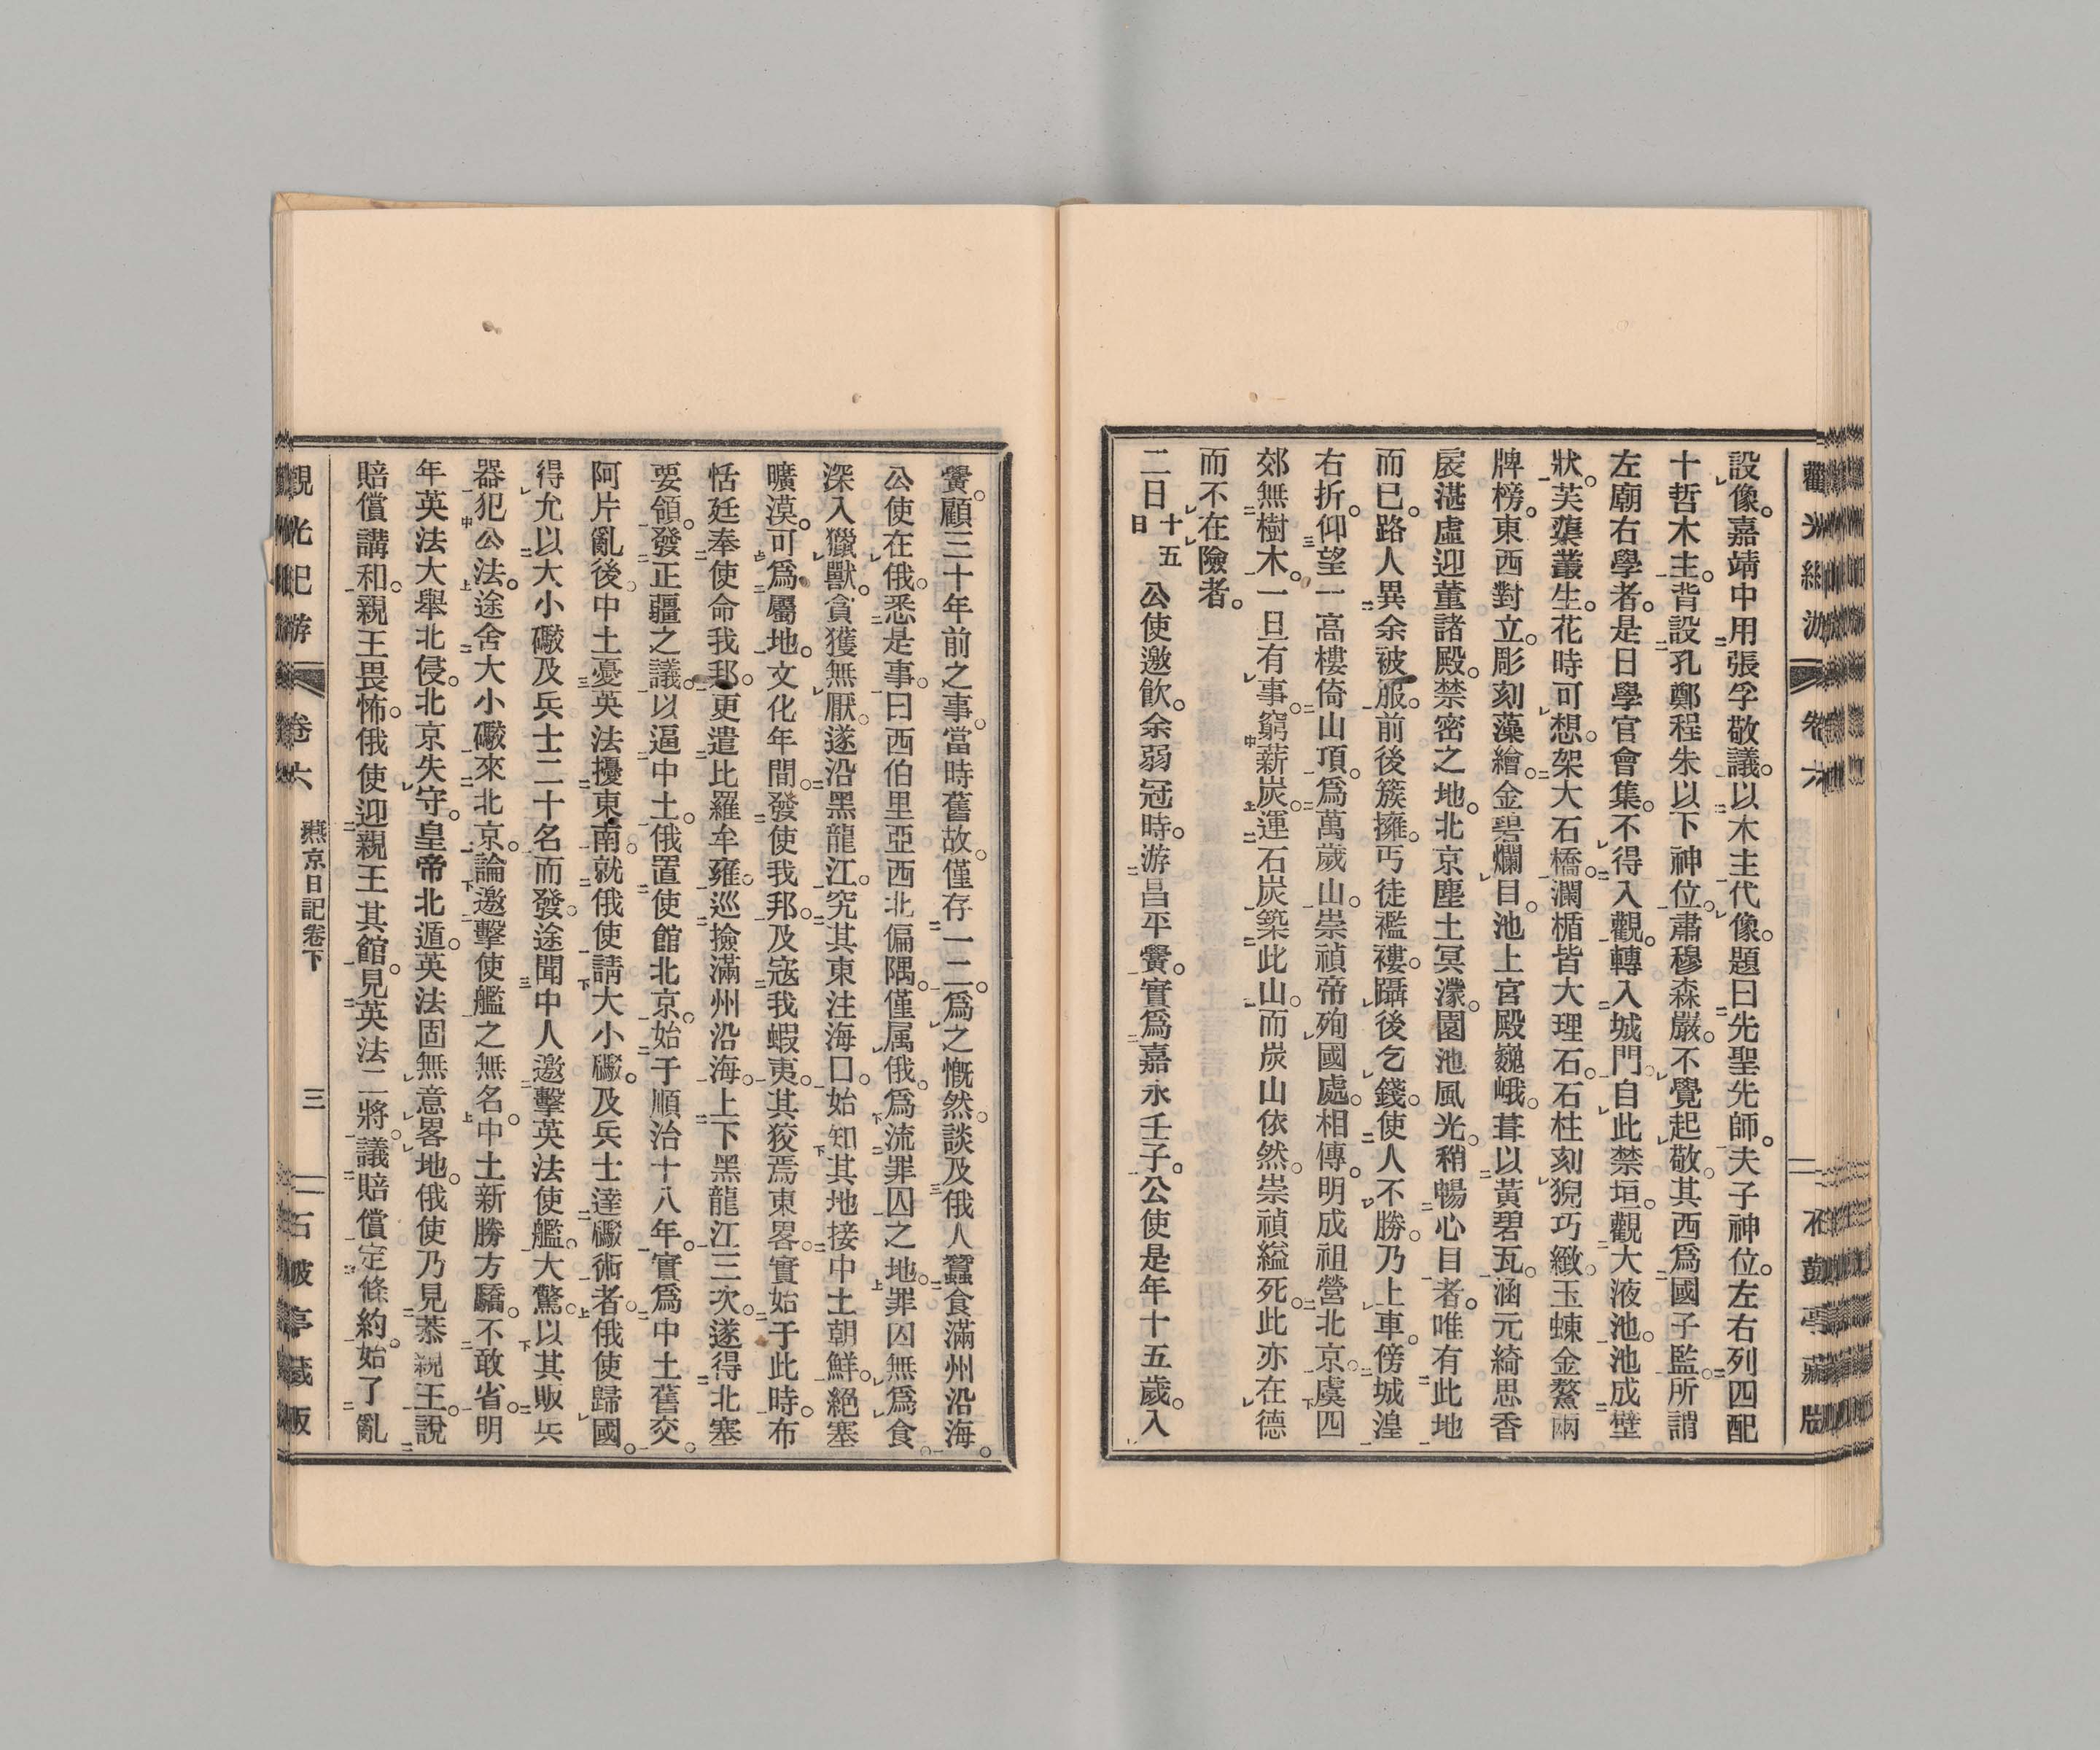 設像。嘉靖中用張孚敬議。以木主代像。題曰先聖先師。夫子神位。左右列四配
十哲木主。背設孔鄭程朱以下神位。肅穆森嚴。不覺起敬。其西爲國子監。所謂
左廟右學者。是日學官會集。不得入觀。轉入城門。自此禁垣。觀大液池。池成壁
狀。芙蕖叢生。花時可想。架大石橋。瀾楯皆大理石。石柱刻猊巧緻。玉蝀金鰲兩
牌榜。東西對立。彫刻藻繪。金碧爛目。池上宮殿巍峨。葺以黃碧瓦。涵元綺思香
扆湛虛迎董諸殿。禁密之地。北京塵土冥濛。園池風光。稍暢心目者。唯有此地
而已。路人異余被服。前後簇擁。丐徒襤褸。躡後乞錢。使人不勝。乃上車。傍城湟
右折。仰望一高樓倚山頂。爲萬歲山。崇禎帝殉國處。相傳。明成祖營北京。虞四
郊無樹木。一旦有事。窮薪炭。運石炭築此山。而炭山依然。崇禎縊死。此亦在德
而不在險者。
二日十五日公使邀飲。余弱冠時。游昌平黌。實爲嘉永壬子。公使是年十五歲。入
黌。顧三十年前之事。當時舊故。僅存一二。爲之慨然。談及俄人蠶食滿州沿海。
公使在俄。悉是事。曰西伯里亞西北偏隅。僅属俄。爲流罪囚之地。罪囚無爲食。
深入獵獸。貪獲無厭。遂沿黑龍江。究其東注海口。始知其地接中土朝鮮。絕塞
曠漠。可爲屬地。文化年間。發使我邦。及寇我蝦夷。其狡焉東畧。實始于此時。布
恬廷奉使命我邦。更遣比羅牟雍。巡撿滿州沿海。上下黑龍江三次。遂得北塞
要領。發正疆之議。以逼中土。俄置使館北京。始于順治十八年。實爲中土舊交。
阿片亂後。中土憂英法擾東南。就俄使請大小礮。及兵士達礮術者。俄使歸國。
得允以大小礮及兵士二十名而發。途聞中人邀擊英法使艦。大驚。以其販兵
器犯公法。途舍大小礮來北京。論邀擊使艦之無名。中土新勝方驕。不敢省。明
年英法大舉北侵。北京失守。皇帝北遁。英法固無意畧地。俄使乃見恭親王。說
賠償講和。親王畏怖。俄使迎親王其館。見英法二將。議賠償定條約。始了亂
觀光紀游 卷六 燕京日記卷下 三 石皷亭藏版